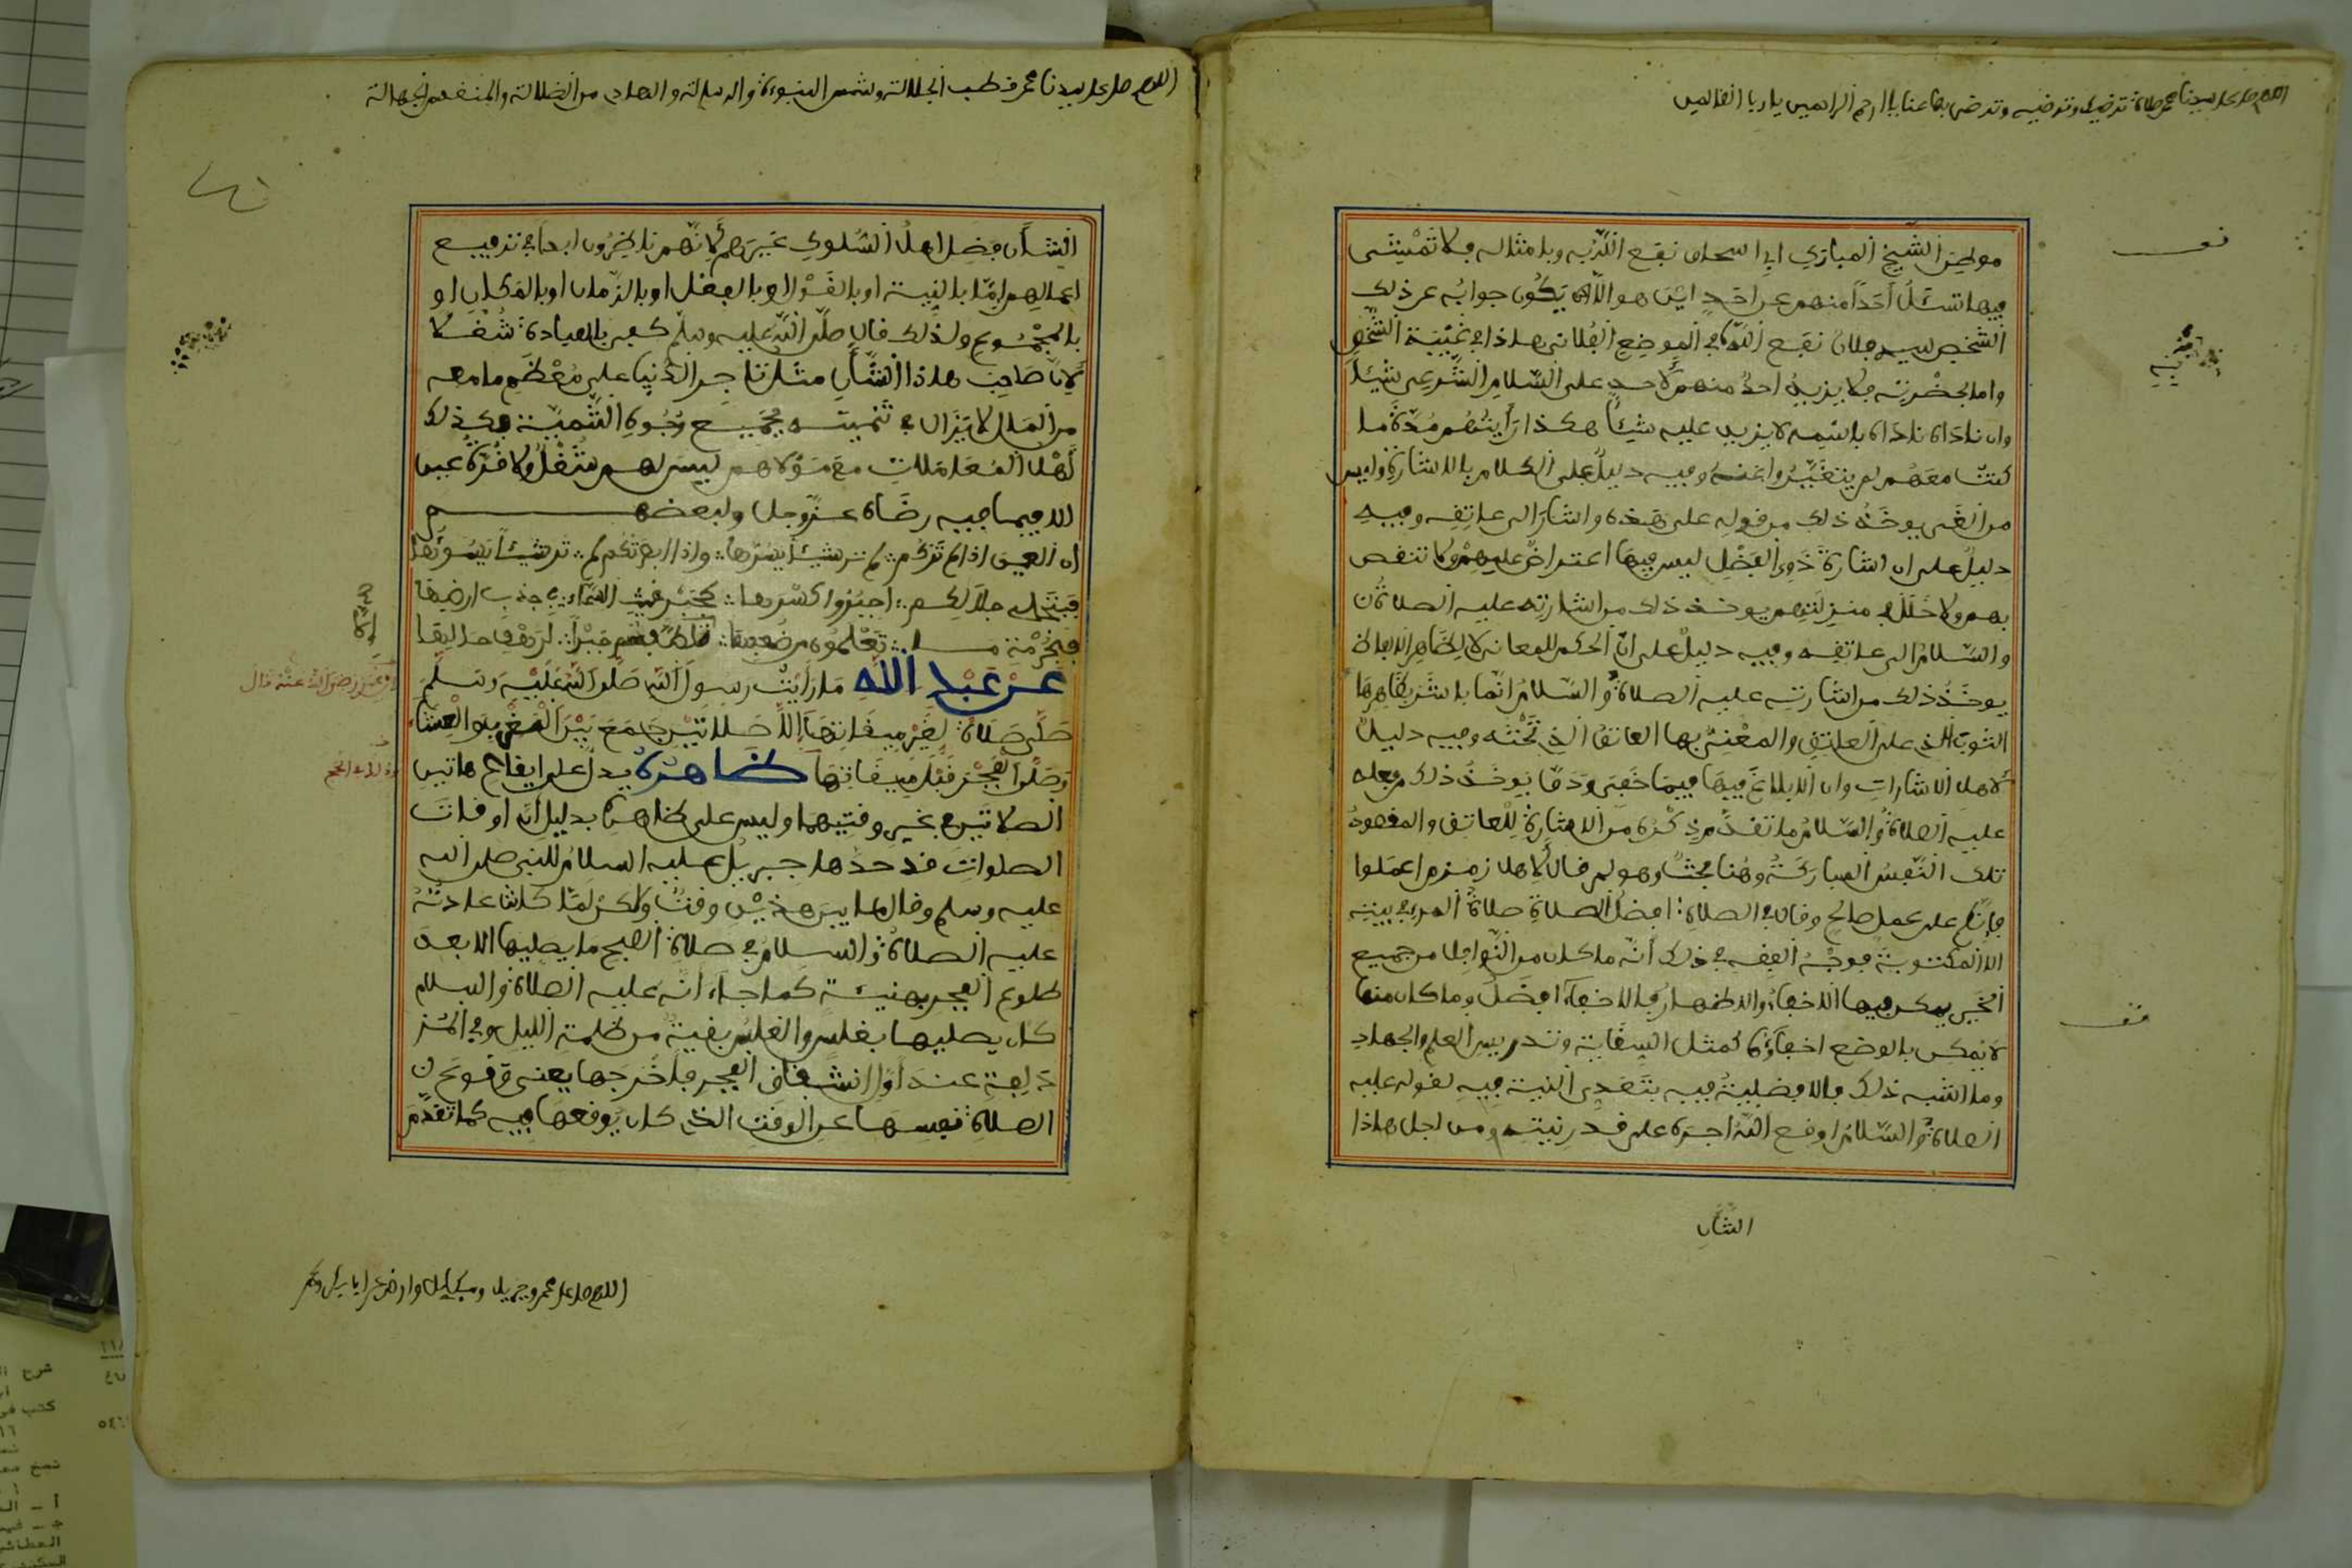 اللهم صل على سيدنا محمد صلاة ترضيك وترضيه وترضى بها عنا يا أرحم الراحمين يا رب العالمين
قف
موطن الشيخ المبارك ابي اسحاق نفع الله به وبامثاله فلا تمشى
فيها تسئل أحدا منهم عن احد اين هو الا ان يكون جوابه عن ذلك
الشخص لسيد فلان نفع الله به في الموضع الفلاني هذا في غيبة الشخص
واما بحضرته فلا يزيد احد منهم لاحد على السلام الشرعى شيئا
وان ناداه ناداه باسمه لا يزيد عليه شيئا هكذا رأيتهم مدة ما
كنت معهم لم يتغيروا عنه وفيه دليل على الكلام بالاشارة وليس
من الغى يوخذ ذلك من قوله على هذه واشار الى عاتقه وفيه
دليل على ان اشارة ذوى الفضل ليس فيها اعتراض عليهم ولا تنقص
بهم ولا خلل في منزلتهم يوخذ ذلك من اشارته عليه الصلاة
والسلام الى عاتقه وفيه دليل على ان الحكم للمعانى لا لظاهر الالفاظ
يوخذ ذلك من اشارته عليه الصلاة والسلام انما باشر بظاهرها
الثوب الذى على العاتق والمعنى بها العاتق الذي تحته وفيه دليل
لاهل الاشارات وان البلاغ فيها فيما خفى ودق يوخذ ذلك من فعله
عليه الصلاة والسلام ما تقدم من ذكره من الاشارة للعاتق والمقصود
تلك النفس المباركة وهنا بحث وهو لم قال لاهل زمزم اعملوا
فانكم على عمل صالح وقال في الصلاة افضل الصلاة صلاة المرء في بيته
الا المكتوبة فوجه الفقه في ذلك انه ما كان من النوافل من جميع
الخير يمكن فيها الاخفاء والاظهار فالاخفاء افضل وما كان منها
لا يمكن بالوضع اخفاؤه كمثل السقاية وتدريس العلم والجهاد
وما اشبه ذلك فالافضلية فيه بتقدير النية فيه لقوله عليه
الصلاة والسلام اوقع الله اجره على قدر نيته ومن اجل هذا
قف
الشأن
اللهم صل على سيدنا محمد قطب الجلالة وشمس النبوءة والرسالة والهادي من الضلالة والمنقذ من الجهالة
الشأن فضل اهل السلوك غيرهم لانهم ناظرون ابدا في ترفيع
اعمالهم اما بالنية او بالقول او بالفعل او بالزمان او بالمكان او
بالمجموع ولذلك قال صلى الله عليه وسلم كفى بالعبادة شغلا
لان صاحب هذا الشأن مثل تاجر الدنيا على معظم ما معه
من المال لا يزال في تنميته بجميع وجوه التنمية وكذلك
اهل المعاملات مع مولاهم ليس لهم شغل ولا قرة عين
الا فيما فيه رضاه عز وجل ولبعضهم
ان العين اذا لم تركم لم تر شيئا يسرها واذا ابصرتكم لم تر شيئا يسوئها
اجبروا كسرها كجبر غيث السماء في جذب ارضها
عن عبد الله ما رأيت رسول الله صلى الله عليه وسلم
رضى الله عنه قال
صلى صلاة لغير ميقاتها الا صلاتين جمع بين المغرب والعشاء
وصلى الفجر قبل ميقاتها ظاهره يدل على ايقاع هاتين
الصلاتين في غير وقتيهما وليس على ظاهره بدليل ان اوقات
الصلوات قد حدها جبريل عليه السلام للنبى صلى الله
عليه وسلم وقال ما بين هذين وقت ولكن لما كانت عادته
عليه الصلاة والسلام في صلاة الصبح ما يصليها الا بعد
طلوع الفجر بهنيئة كما جاء انه عليه الصلاة والسلام
كان يصليها بغلس والغلس بقية من ظلمة الليل وفي المز
دلفة عند اول انشقاق الفجر فاخرجها يعنى وقوع
الصلاة نفسها عن الوقت الذي كان يوقعها فيه كما تقدم